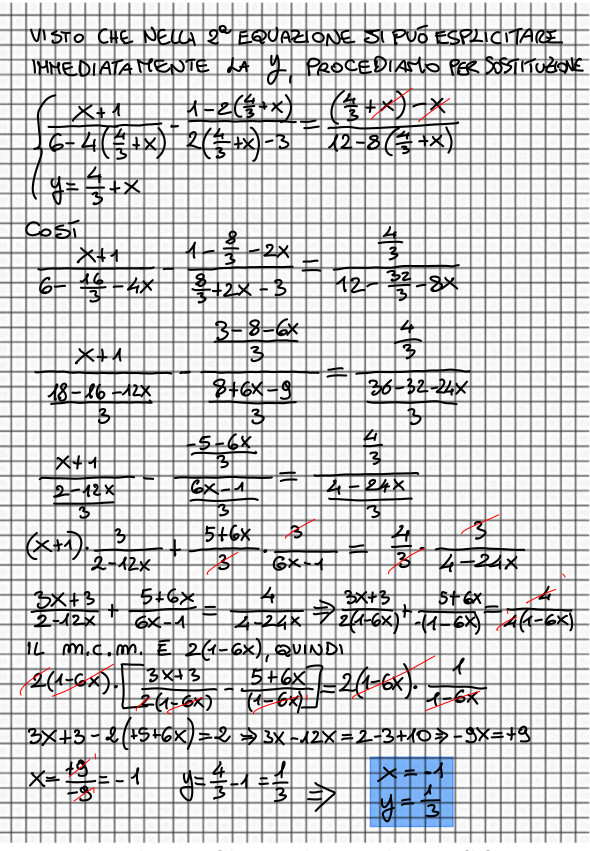 VISTO CHE NELLA 2ª EQUAZIONE SI PUÒ ESPLICITARE
IMMEDIATAMENTE LA y, PROCEDIAMO PER SOSTITUZIONE
{ (x+1)/(6-4(4/3+x)) - (1-2(4/3+x))/(2(4/3+x)-3) = ((4/3+x)-x)/(12-8(4/3+x))
y = 4/3 + x
COSÌ
(x+1)/(6-16/3-4x) - (1-8/3-2x)/(8/3+2x-3) = (4/3)/(12-32/3-8x)
(x+1)/((18-16-12x)/3) - ((3-8-6x)/3)/((8+6x-9)/3) = (4/3)/((36-32-24x)/3)
(x+1)/((2-12x)/3) - ((-5-6x)/3)/((6x-1)/3) = (4/3)/((4-24x)/3)
(x+1)·3/(2-12x) + (5+6x)/3 · 3/(6x-1) = 4/3 · 3/(4-24x)
(3x+3)/(2-12x) + (5+6x)/(6x-1) = 4/(4-24x) ⇒ (3x+3)/(2(1-6x)) + (5+6x)/(-(1-6x)) = 4/(4(1-6x))
IL m.c.m. È 2(1-6x), QUINDI
2(1-6x)·[(3x+3)/(2(1-6x)) - (5+6x)/(1-6x)] = 2(1-6x)·1/(1-6x)
3x+3-2(+5+6x)=2 ⇒ 3x-12x=2-3+10 ⇒ -9x=+9
x = +9/-9 = -1 y = 4/3 - 1 = 1/3 ⇒ x = -1
y = 1/3